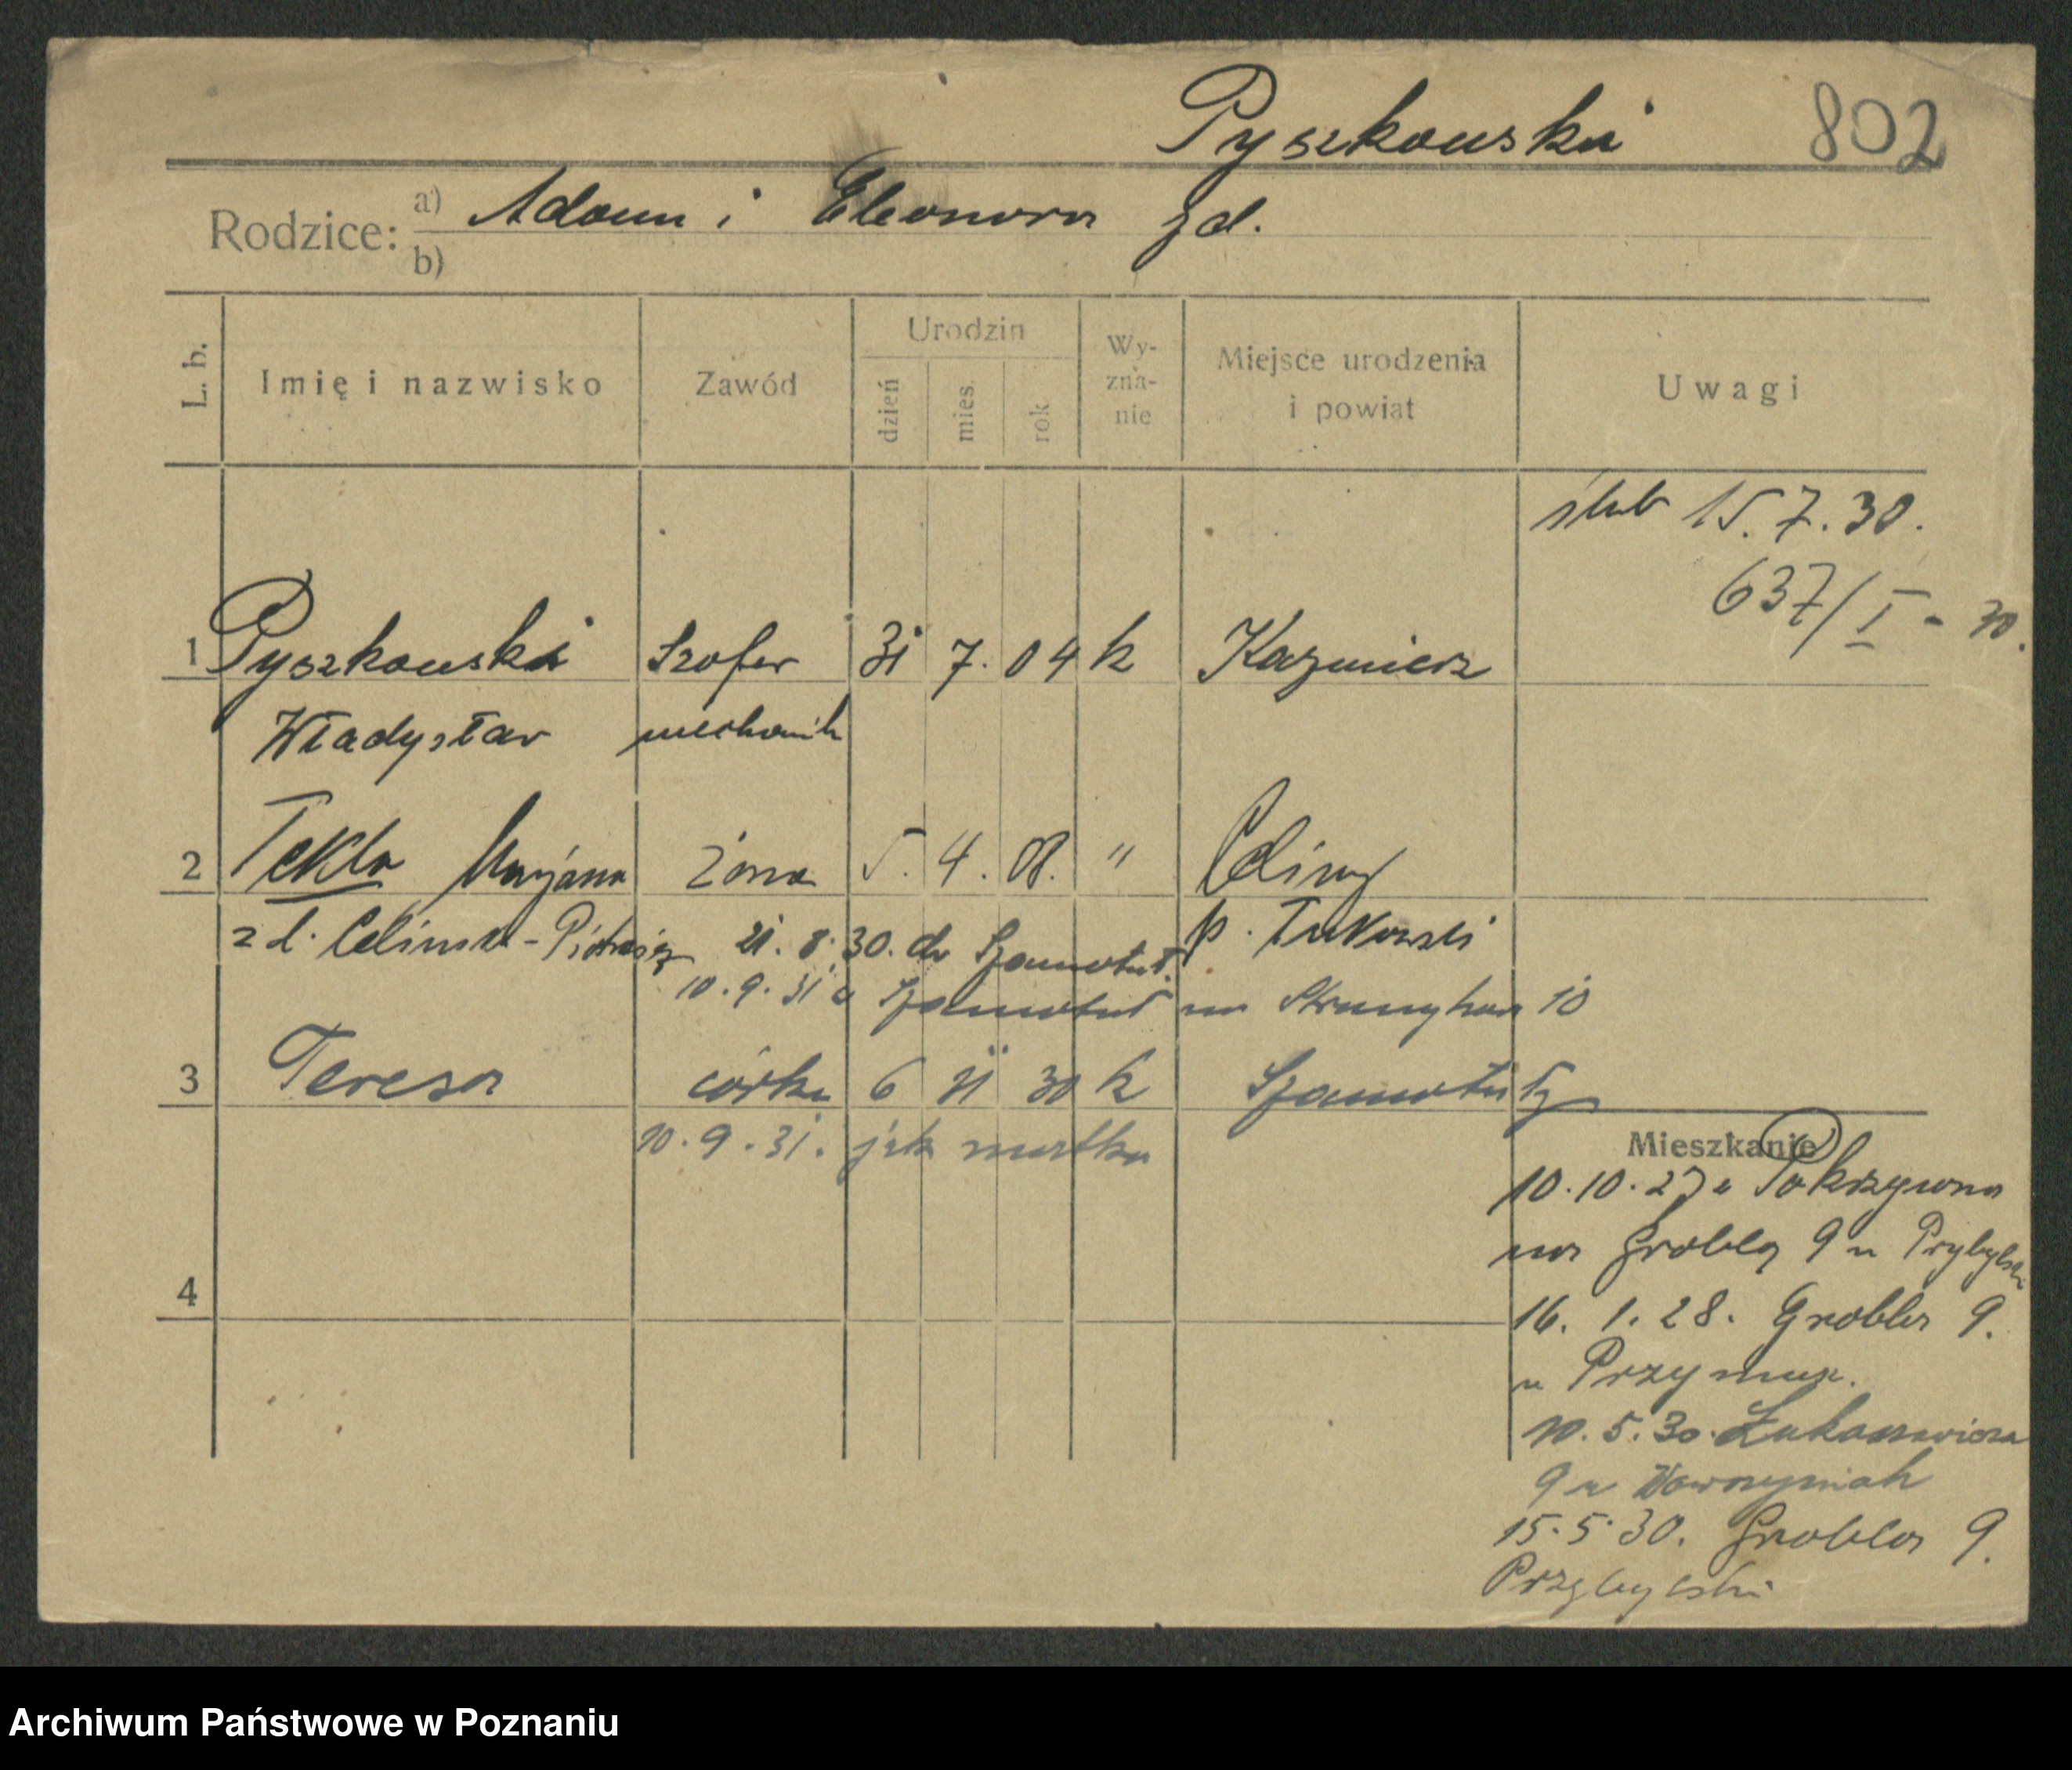 Pyszkowski 802
Rodzice: a) Adam i Eleonora
b)
L. b.
Imię i nazwisko
Zawód
Urodzin
dzień
mies.
rok
Wy-
zna-
nie
Miejsce urodzenia
i powiat
Uwagi
ślub 15. 7. 30.
637/I - 30.
1 Pyszkowski Szofer 31 7. 04 k Kaźmierz
Władysław mechanik
2 Tekla Maryanna żona 5. 4. 08. "
z d. 21. 8. 30. do Szamotuł.
10. 9. 31 z Szamotuł na 10
3 Teresa córka 6 11 30 k Szamotuły
10. 9. 31. jak matka
Mieszkanie
10. 10. 27 z Pokrzywna
na Groblę 9 u Przybylski
16. 1. 28. Grobla 9.
u
10. 5. 30. Łukaszewicza
9 u Wawrzyniak
15. 5. 30. Grobla 9.
Przybylski
4
Archiwum Państwowe w Poznaniu